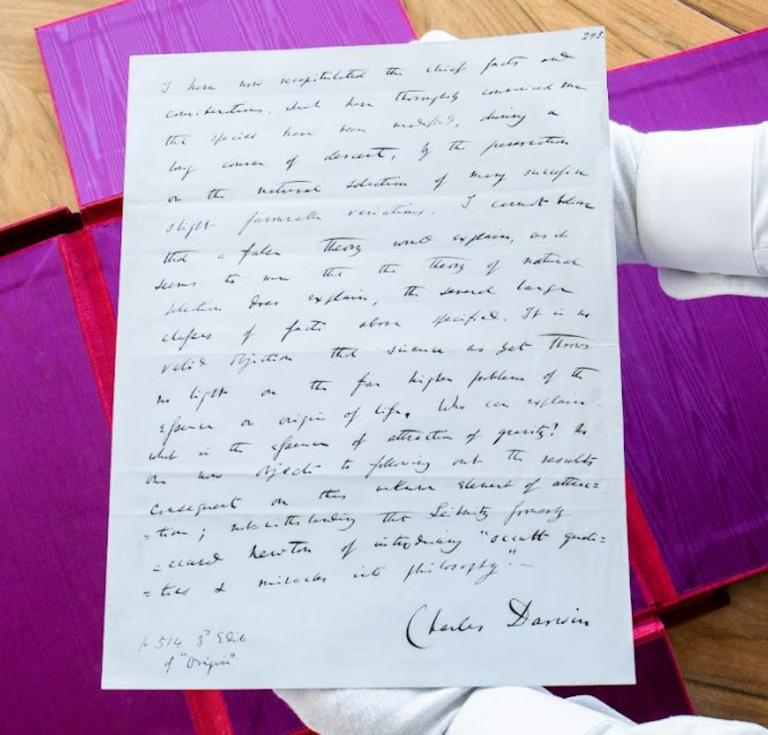 243.
I have now recapitulated the chief facts and
considerations, which have thoroughly convinced me
that species have been modified, during a
long course of descent, by the preservation
or the natural selection of many successive
slight favourable variations. I cannot believe
that a false theory would explain, as it
seems to me that the theory of natural
selection does explain, the several large
classes of facts above specified. It is no
valid objection that science as yet throws
no light on the far higher problems of the
essence or origin of life. Who can explain
what is the essence of attraction of gravity? No
one now objects to following out the results
consequent on this unknown element of attrac=
=tion; notwithstanding that Leibnitz formerly
=accused Newton of introducing "occult quali=
=ties & miracles into philosophy."—
Charles Darwin
p 514 3d Edit
of "Origin"